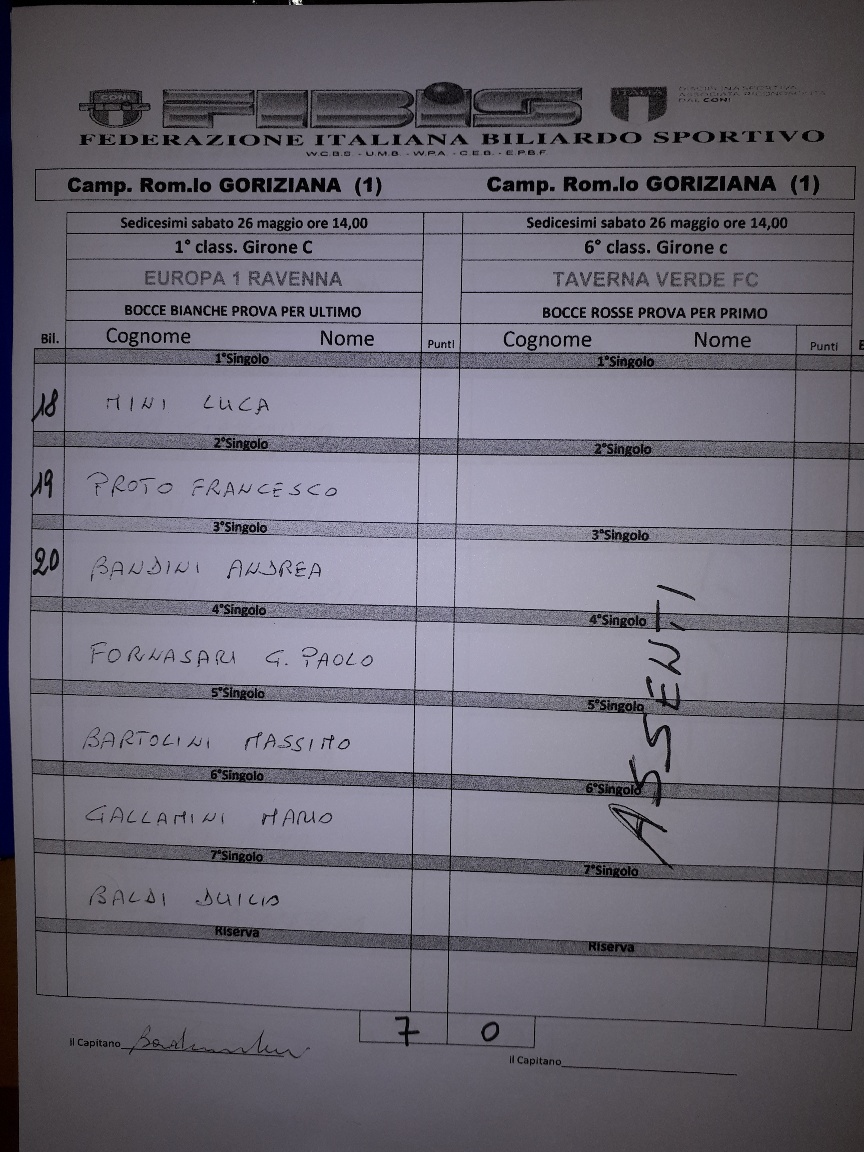 CONI FIBIS ITALIA DISCIPLINA SPORTIVA
ASSOCIATA RICONOSCIUTA
DAL CONI
FEDERAZIONE ITALIANA BILIARDO SPORTIVO
W.C.B.S - U.M.B - W.P.A - C.E.B - E.P.B.F
Camp. Rom.lo GORIZIANA (1) Camp. Rom.lo GORIZIANA (1)
Sedicesimi sabato 26 maggio ore 14,00 Sedicesimi sabato 26 maggio ore 14,00
1° class. Girone C 6° class. Girone c
EUROPA 1 RAVENNA TAVERNA VERDE FC
BOCCE BIANCHE PROVA PER ULTIMO BOCCE ROSSE PROVA PER PRIMO
Bil. Cognome Nome Punti Cognome Nome Punti
1°Singolo 1°Singolo
18 MINI LUCA
2°Singolo 2°Singolo
19 PROTO FRANCESCO
3°Singolo 3°Singolo
20 BANDINI ANDREA
4°Singolo 4°Singolo
FORNASARI G. PAOLO
5°Singolo 5°Singolo
BARTOLINI MASSIMO
6°Singolo 6°Singolo
GALLAMINI MARIO
7°Singolo 7°Singolo
BALDI DUILIO
Riserva Riserva
ASSENTI
7 0
Il Capitano
Il Capitano